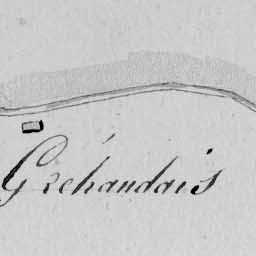 Gréhandais